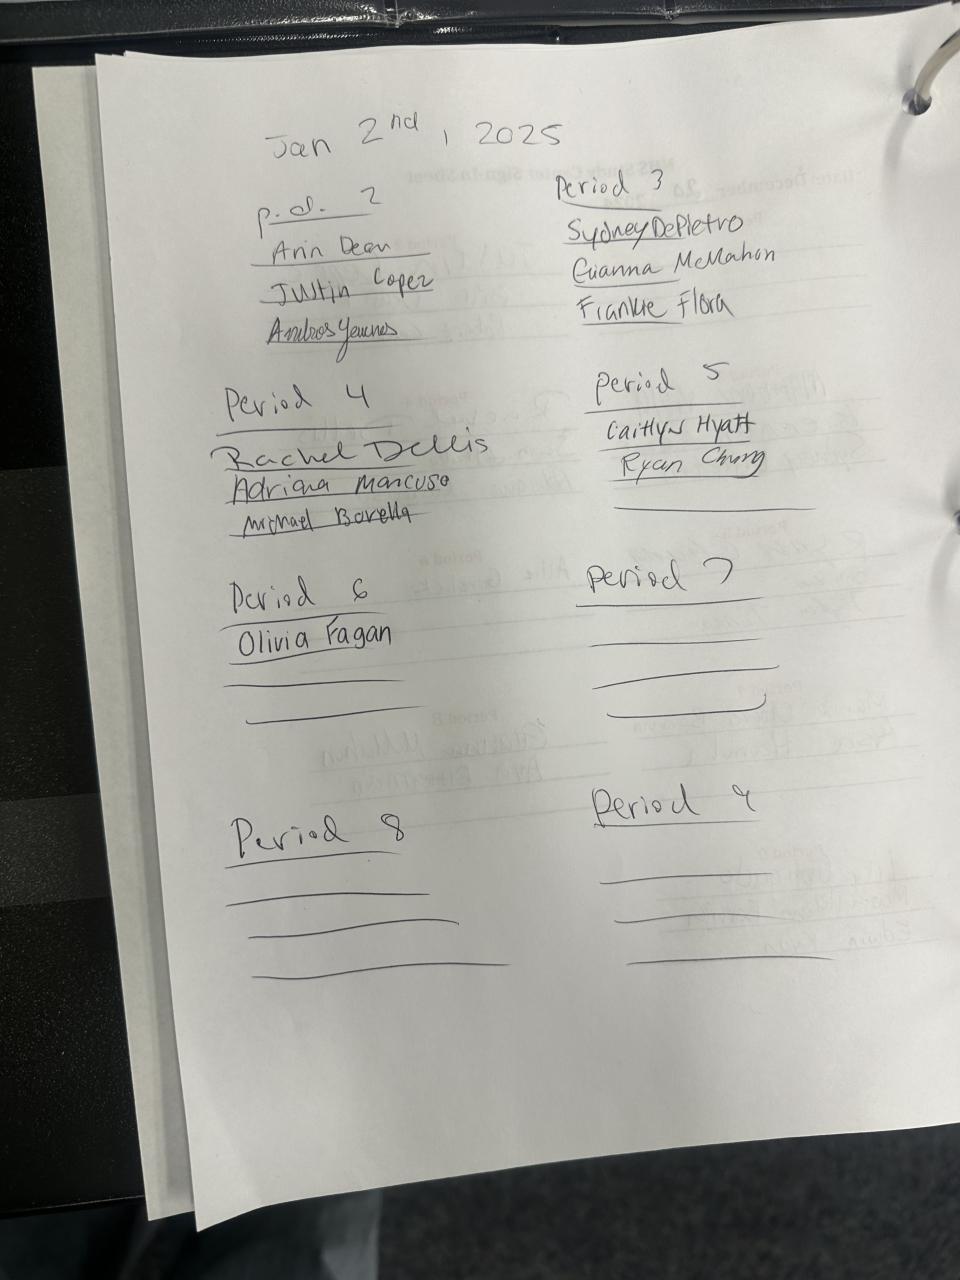 Jan 2nd, 2025
p.d. 2
Arin Dean
Justin Lopez
Period 3
Sydney DePietro
Gianna McMahon
Frankie Flora
Period 4
Rachel Dellis
Adriana Mancuso
Michael Borella
Period 5
Caitlyn Hyatt
Ryan Chung
Period 6
Olivia Fagan
Period 7
Period 8
Period 9